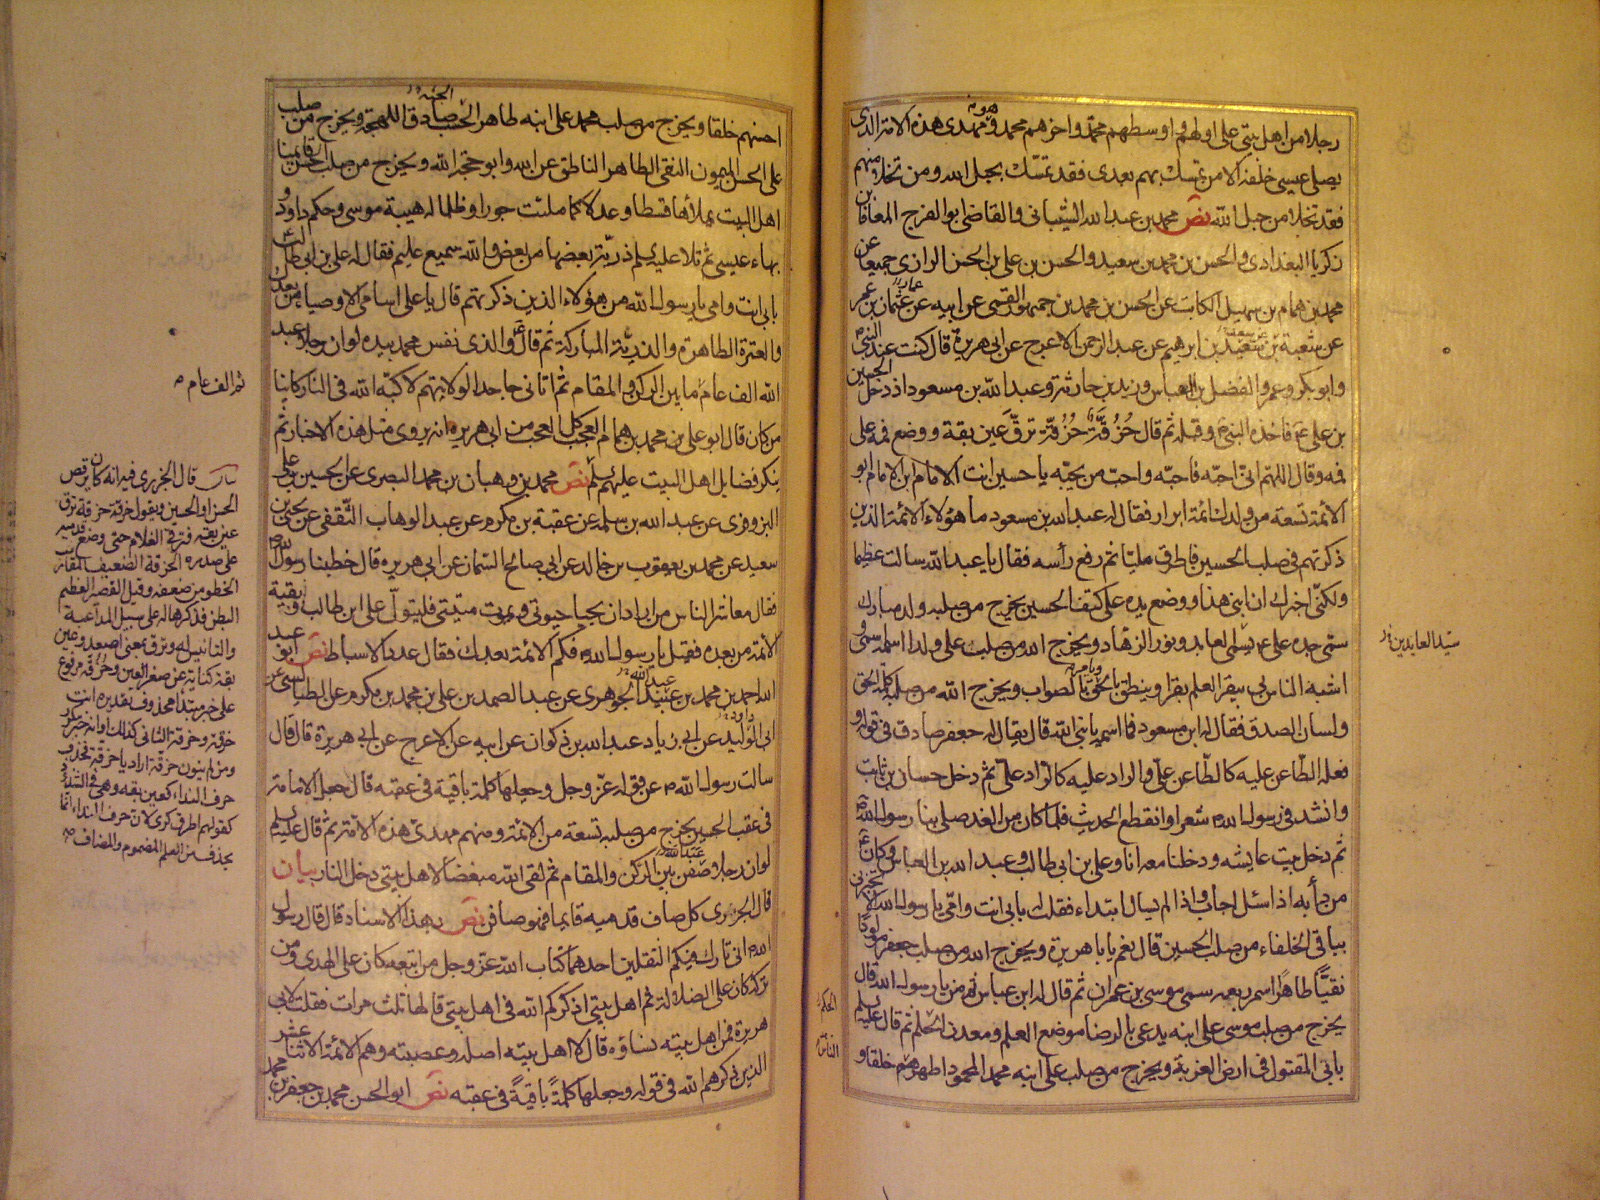 رجلا من اهل بيتى على اولهم واوسطهم محمد واخرهم محمد وهو مهدى هذه الامة الذى
يصلى عيسى خلفه الا من تمسك بهم بعدى فقد تمسك بحبل الله ومن تخلا منهم
فقد تخلا من حبل الله نص محمد بن عبد الله الشيبانى والقاضى ابو الفرج المعافا بن
زكريا البغدادى والحسن بن محمد بن سعيد والحسن بن على بن الحسن الرازى جميعا عن
محمد بن همام بن سهيل الكاتب عن الحسن بن محمد بن جمهور القمى عن ابيه عن عثمان بن عمر
عن شعبة بن سعيد بن ابرهيم عن عبد الرحمن الاعرج عن ابى هريرة قال كنت عند النبى
وابو بكر وعمر والفضل بن العباس وزيد بن حارثة وعبد الله بن مسعود اذ دخل الحسين
بن على ع فاخذه النبى ص وقبله ثم قال حزقة حزقة ترق عين بقة ووضع فمه على
فمه وقال اللهم انى احبه فاحبه واحب من يحبه يا حسين انت الامام ابن الامام ابو
الائمة تسعة من ولدك ائمة ابرار فقال له عبد الله بن مسعود ما هؤلاء الائمة الذين
ذكرتهم فى صلب الحسين فاطرق مليا ثم رفع رأسه فقال يا عبد الله سالت عظيما
ولكنى اخبرك ان ابنى هذا ووضع يده على كتف الحسين يخرج من صلبه ولد مبارك
سمى جده على ع يسمى العابد ونور الزهاد ويخرج الله من صلب على ولدا اسمه اسمى و
اشبه الناس بى يبقر العلم بقرا وينطق بالحق ويامر بالصواب ويخرج الله من صلبه كلمة الحق
ولسان الصدق فقال له ابن مسعود فما اسمه يا نبى الله قال يقال له جعفر صادق فى قوله و
فعله الطاعن عليه كالطاعن على والراد عليه كالراد على ثم دخل حسان بن ثابت
وانشد فى رسول الله ص شعرا وانقطع الحديث فلما كان من الغد صلى بنا رسول الله ص
ثم دخل بيت عايشه ودخلنا معه انا وعلى بن ابى طالب وعبد الله بن العباس وكان ع
من دأبه اذا سئل اجاب واذا لم يسال ابتداء فقلت له بابى انت وامى يا رسول الله الا تخبرنى
بباقى الخلفاء من صلب الحسين قال نعم يا با هريرة ويخرج الله من صلب جعفر مولودا
نقيا طاهرا اسمر ربعه سمى موسى بن عمران ثم قال له ابن عباس ثم من يا رسول الله قال
يخرج من صلب موسى على ابنه يدعى بالرضا موضع العلم ومعدن الحلم ثم قال عليه السلم
بابى المقتول فى ارض الغربة ويخرج من صلب على ابنه محمد المحمود اطهرهم خلقا و
سيد العابدين
احسنهم خلقا ويخرج من صلب محمد على ابنه طاهر الحسب صادق اللهجة ويخرج من صلب
على الحسن الميمون النقى الطاهر الناطق عن الله وابو حجة الله ويخرج من صلب الحسن قايمنا
اهل البيت يملأها قسطا وعدلا كما ملئت جورا وظلما له هيبة موسى وحكم داود و
بهاء عيسى ثم تلا عليه السلم ذرية بعضها من بعض والله سميع عليم فقال له على بن ابى طالب
بابى انت وامى يا رسول الله من هؤلاء الذين ذكرتهم قال يا على اسامى الاوصيا من بعدك
والعترة الطاهرة والذرية المباركة ثم قال والذى نفس محمد بيده لو ان رجلا عبد
الله الف عام ما بين الركن والمقام ثم اتانى جاحدا لولايتهم لاكبه الله فى النار كاينا
من كان قال ابو على بن محمد بن همام العجب كل العجب من ابى هريره انه يروى مثل هذه الاخبار ثم
ينكر فضايل اهل البيت عليهم السلم نص محمد بن وهبان بن محمد البصرى عن الحسين بن على
البزوفرى عن عبد الله بن مسلمه عن عقبة بن مكرم عن عبد الوهاب الثقفى عن يحيى بن
سعيد عن محمد بن يعقوب بن خالد عن ابى صالح السمان عن ابى هريره قال خطبنا رسول الله ص
فقال معاشر الناس من اراد ان يحيا حيوتى ويموت ميتتى فليتول على ابن طالب وليقتد
الائمة من بعده فقيل يا رسول الله فكم الائمة بعدك فقال عدد الاسباط نص ابو عبد
الله احمد بن محمد بن عبيد الله الجوهرى عن عبد الصمد بن على بن محمد بن مكرم عن الطيالسى عن
ابى الوليد عن ابى زياد عبد الله بن ذكوان عن ابيه عن الاعرج عن ابى هريرة قال قال
سالت رسول الله ص عن قوله عز وجل وجعلها كلمة باقية فى عقبه قال جعل الامامة
فى عقب الحسين يخرج من صلبه تسعة من الائمة ومنهم مهدى هذه الامة ثم قال عليه السلم
لو ان رجلا صفن بين الركن والمقام ثم لقى الله مبغضا لاهل بيتى دخل النار بيان
قال الجزرى كل صاف قدميه قايما فهو صافن نص بهذا الاسناد قال قال رسول
الله انى تارك فيكم الثقلين احدهما كتاب الله عز وجل من اتبعه كان على الهدى ومن
تركه كان على الضلالة ثم اهل بيتى اذكركم الله فى اهل بيتى قالها ثلث مرات فقلت لابى
هريرة فمن اهل بيته نساؤه قال لا اهل بيته اصله وعصبته وهم الائمة الاثنا عشر
الذين ذكرهم الله فى قوله وجعلها كلمة باقية فى عقبه نص ابو الحسن محمد بن جعفر بن محمد
ثم الف عام
بيان قال الجزرى فيه انه كان يرقص
الحسن او الحسين ويقول حزقة حزقة ترق
عين بقه فترقى الغلام حتى وضع قدميه
على صدره الحزقة الضعيف المقارب
الخطو من ضعفه وقيل القصير العظيم
البطن فذكرها له على سبيل المداعبة
والتانيس له وترق بمعنى اصعد وعين
بقه كناية عن صغر العين وحزقة مرفوع
على خبر مبتدا محذوف تقديره انت
حزقة وحزقة الثانى كذلك او انه خبر مكرر
ومن لم ينون حزقة اراد يا حزقة فحذف
حرف النداء كعين بقه وهى فى الشذوذ
كقولهم اطرق كرى لان حرف النداء انما
يحذف من العلم المضموم والمضاف